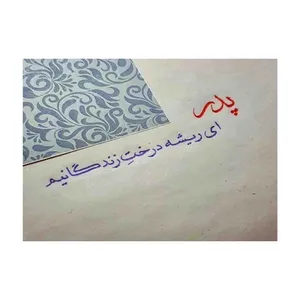 پدر
ای ریشه درختِ زندگانیم